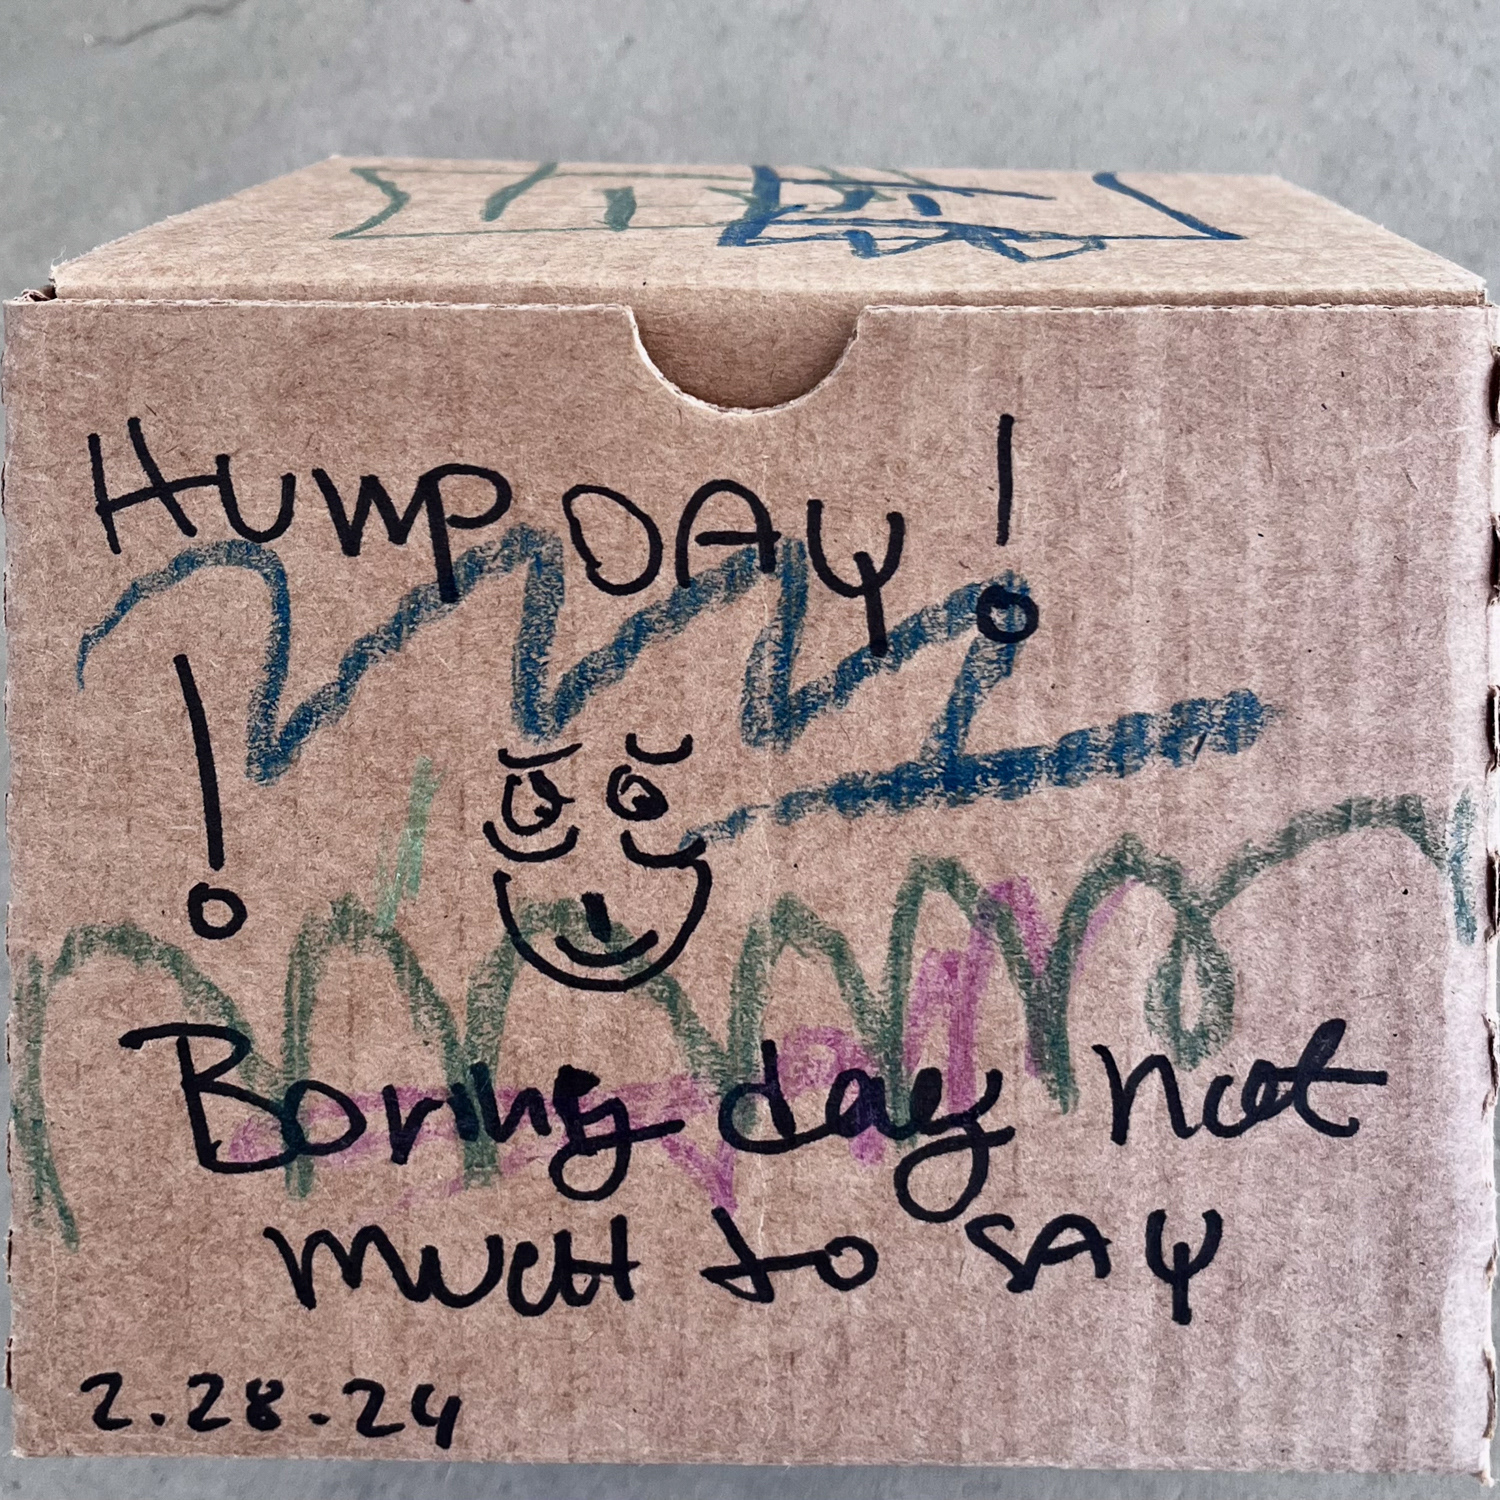 HUMP DAY!
!
Boring day not
much to SAY
2.28.24